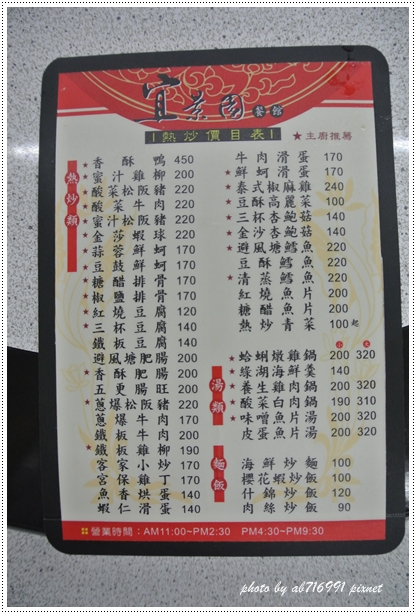 宜景園 餐館
熱炒價目表
★主廚推薦
熱炒類
★香酥鴨 450
★蜜汁雞柳 200
★酸菜松阪豬 220
★酸菜牛肉 220
★蜜汁松阪豬 220
★金莎蝦球 220
★蒜蓉鮮蚵 170
豆鼓鮮蚵 170
★糖醋排骨 170
★椒鹽排骨 170
紅燒豆腐 120
★三杯豆腐 140
鐵板豆腐 140
避風塘肥腸 200
★香酥肥腸 200
五更腸旺 200
★蔥爆松阪豬 220
蔥爆牛肉 170
鐵板牛肉 200
★鐵板雞柳 190
客家小炒 170
宮保雞丁 170
魚香烘蛋 140
蝦仁滑蛋 140
牛肉滑蛋 170
★鮮蚵滑蛋 170
★泰式椒麻雞 240
★豆酥高麗菜 100
★三杯杏鮑菇 140
★金沙杏鮑菇 140
★避風塘鱈魚 220
豆酥鱈魚 220
★清蒸鱈魚 220
紅燒魚片 200
糖醋魚片 200
熱炒青菜 100起
湯類
小 大
★蛤蜊燉雞鍋 200 320
★綠湖海鮮羹 140
★養生雞肉鍋 200 320
★酸菜白肉鍋 190 310
★味噌魚片湯 200 320
皮蛋魚片湯 200 320
麵飯
海鮮炒麵 100
櫻花蝦炒飯 100
什錦炒飯 120
肉絲炒飯 90
營業時間：AM11:00~PM2:30 PM4:30~PM9:30
photo by ab716991 pixnet